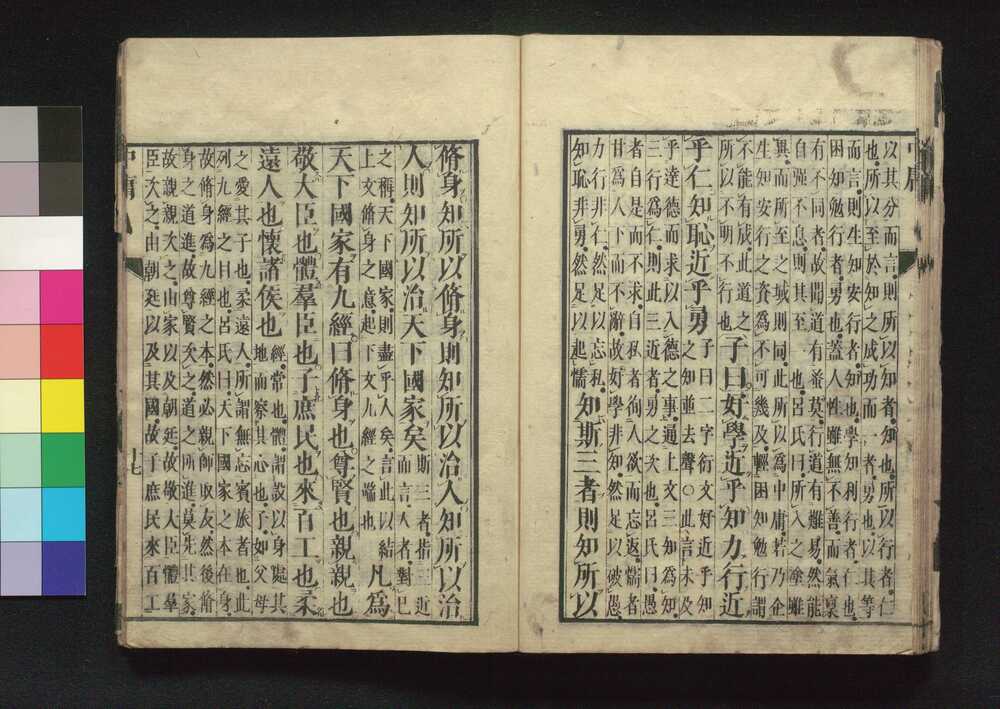 以其分而言則所以知者知也所以行者仁
也所以至於知之成功而一者勇也以其等
而言則生知安行者知也學知利行者仁也
困知勉行者勇也蓋人性雖無不善而氣稟
有不同者故聞道有蚤莫行道有難易然能
自強不息則其至一也呂氏曰所入之塗雖
異而所至之域則同此所以為中庸若乃企
生知安行之資為不可幾及輕困知勉行謂
不能有成此道之
所以不明不行也
子曰好學近乎知力行近
乎仁知恥近乎勇
子曰二字衍文好近乎知
之知並去聲○此言未及
乎達德而求以入德之事通上文三知為知
三行為仁則此三近者勇之次也呂氏曰愚
者自是而不求自私者徇人欲而忘返懦者
甘為人下而不辭故好學非知然足以破愚
力行非仁然足以忘私
知恥非勇然足以起懦
知斯三者則知所以
脩身知所以脩身則知所以治人知所以治
人則知所以治天下國家矣
斯三者指三近
而言人者對己
之稱天下國家則盡乎人矣言此以結
上文脩身之意起下文九經之端也
凡為
天下國家有九經曰脩身也尊賢也親親也
敬大臣也體羣臣也子庶民也來百工也柔
遠人也懷諸侯也
經常也體謂設以身處其
地而察其心也子如父母
之愛其子也柔遠人所謂無忘賓旅者也此
列九經之目也呂氏曰天下國家之本在身
故脩身為九經之本然必親師取友然後脩
身之道進故尊賢次之道之所進莫先其家
故親親次之由家以及朝廷故敬大臣體羣
臣次之由朝廷以及其國故子庶民來百工
中庸
十七